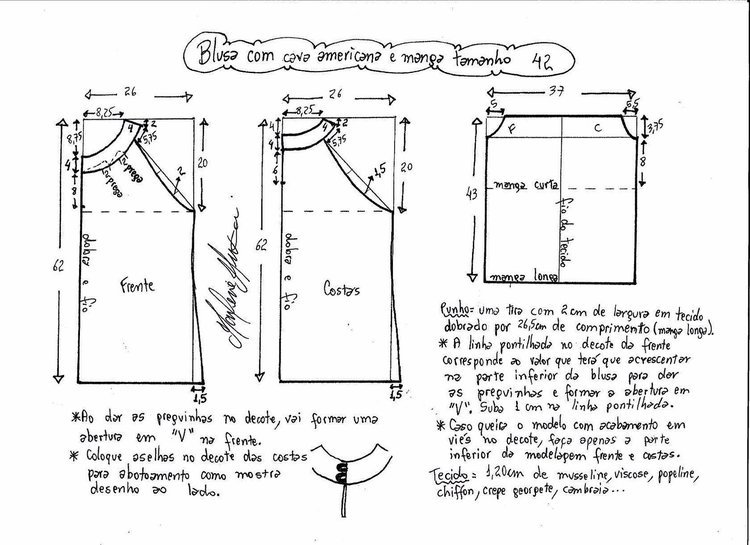 Blusa com cava americana e manga tamanho 42
26
8,25
4
2
8,75
5,75
prega
prega
4
8
2
20
62
dobra e fio
Frente
1,5
26
8,25
4
2
4
4
5,75
6
1,5
20
62
dobra e fio
Costas
1,5
37
5
5,5
F
C
3,75
8
43
manga curta
fio do tecido
manga longa
Punho = uma tira com 2 cm de largura em tecido
dobrado por 26,5cm de comprimento (manga longa).
* A linha pontilhada no decote da frente
corresponde ao valor que terá que acrescentar
na parte inferior da blusa para dar
as preguinhas e formar a abertura em
"V". Suba 1 cm na linha pontilhada.
* Caso queira o modelo com acabamento em
viés no decote, faça apenas a parte
inferior da modelagem frente e costas.
Tecido = 1,20cm de musseline, viscose, popeline,
chiffon, crepe georgete, cambraia...
*Ao dar as preguinhas no decote, vai formar uma
abertura em "V" na frente.
* Coloque aselhas no decote das costas
para abotoamento como mostra
desenho ao lado.